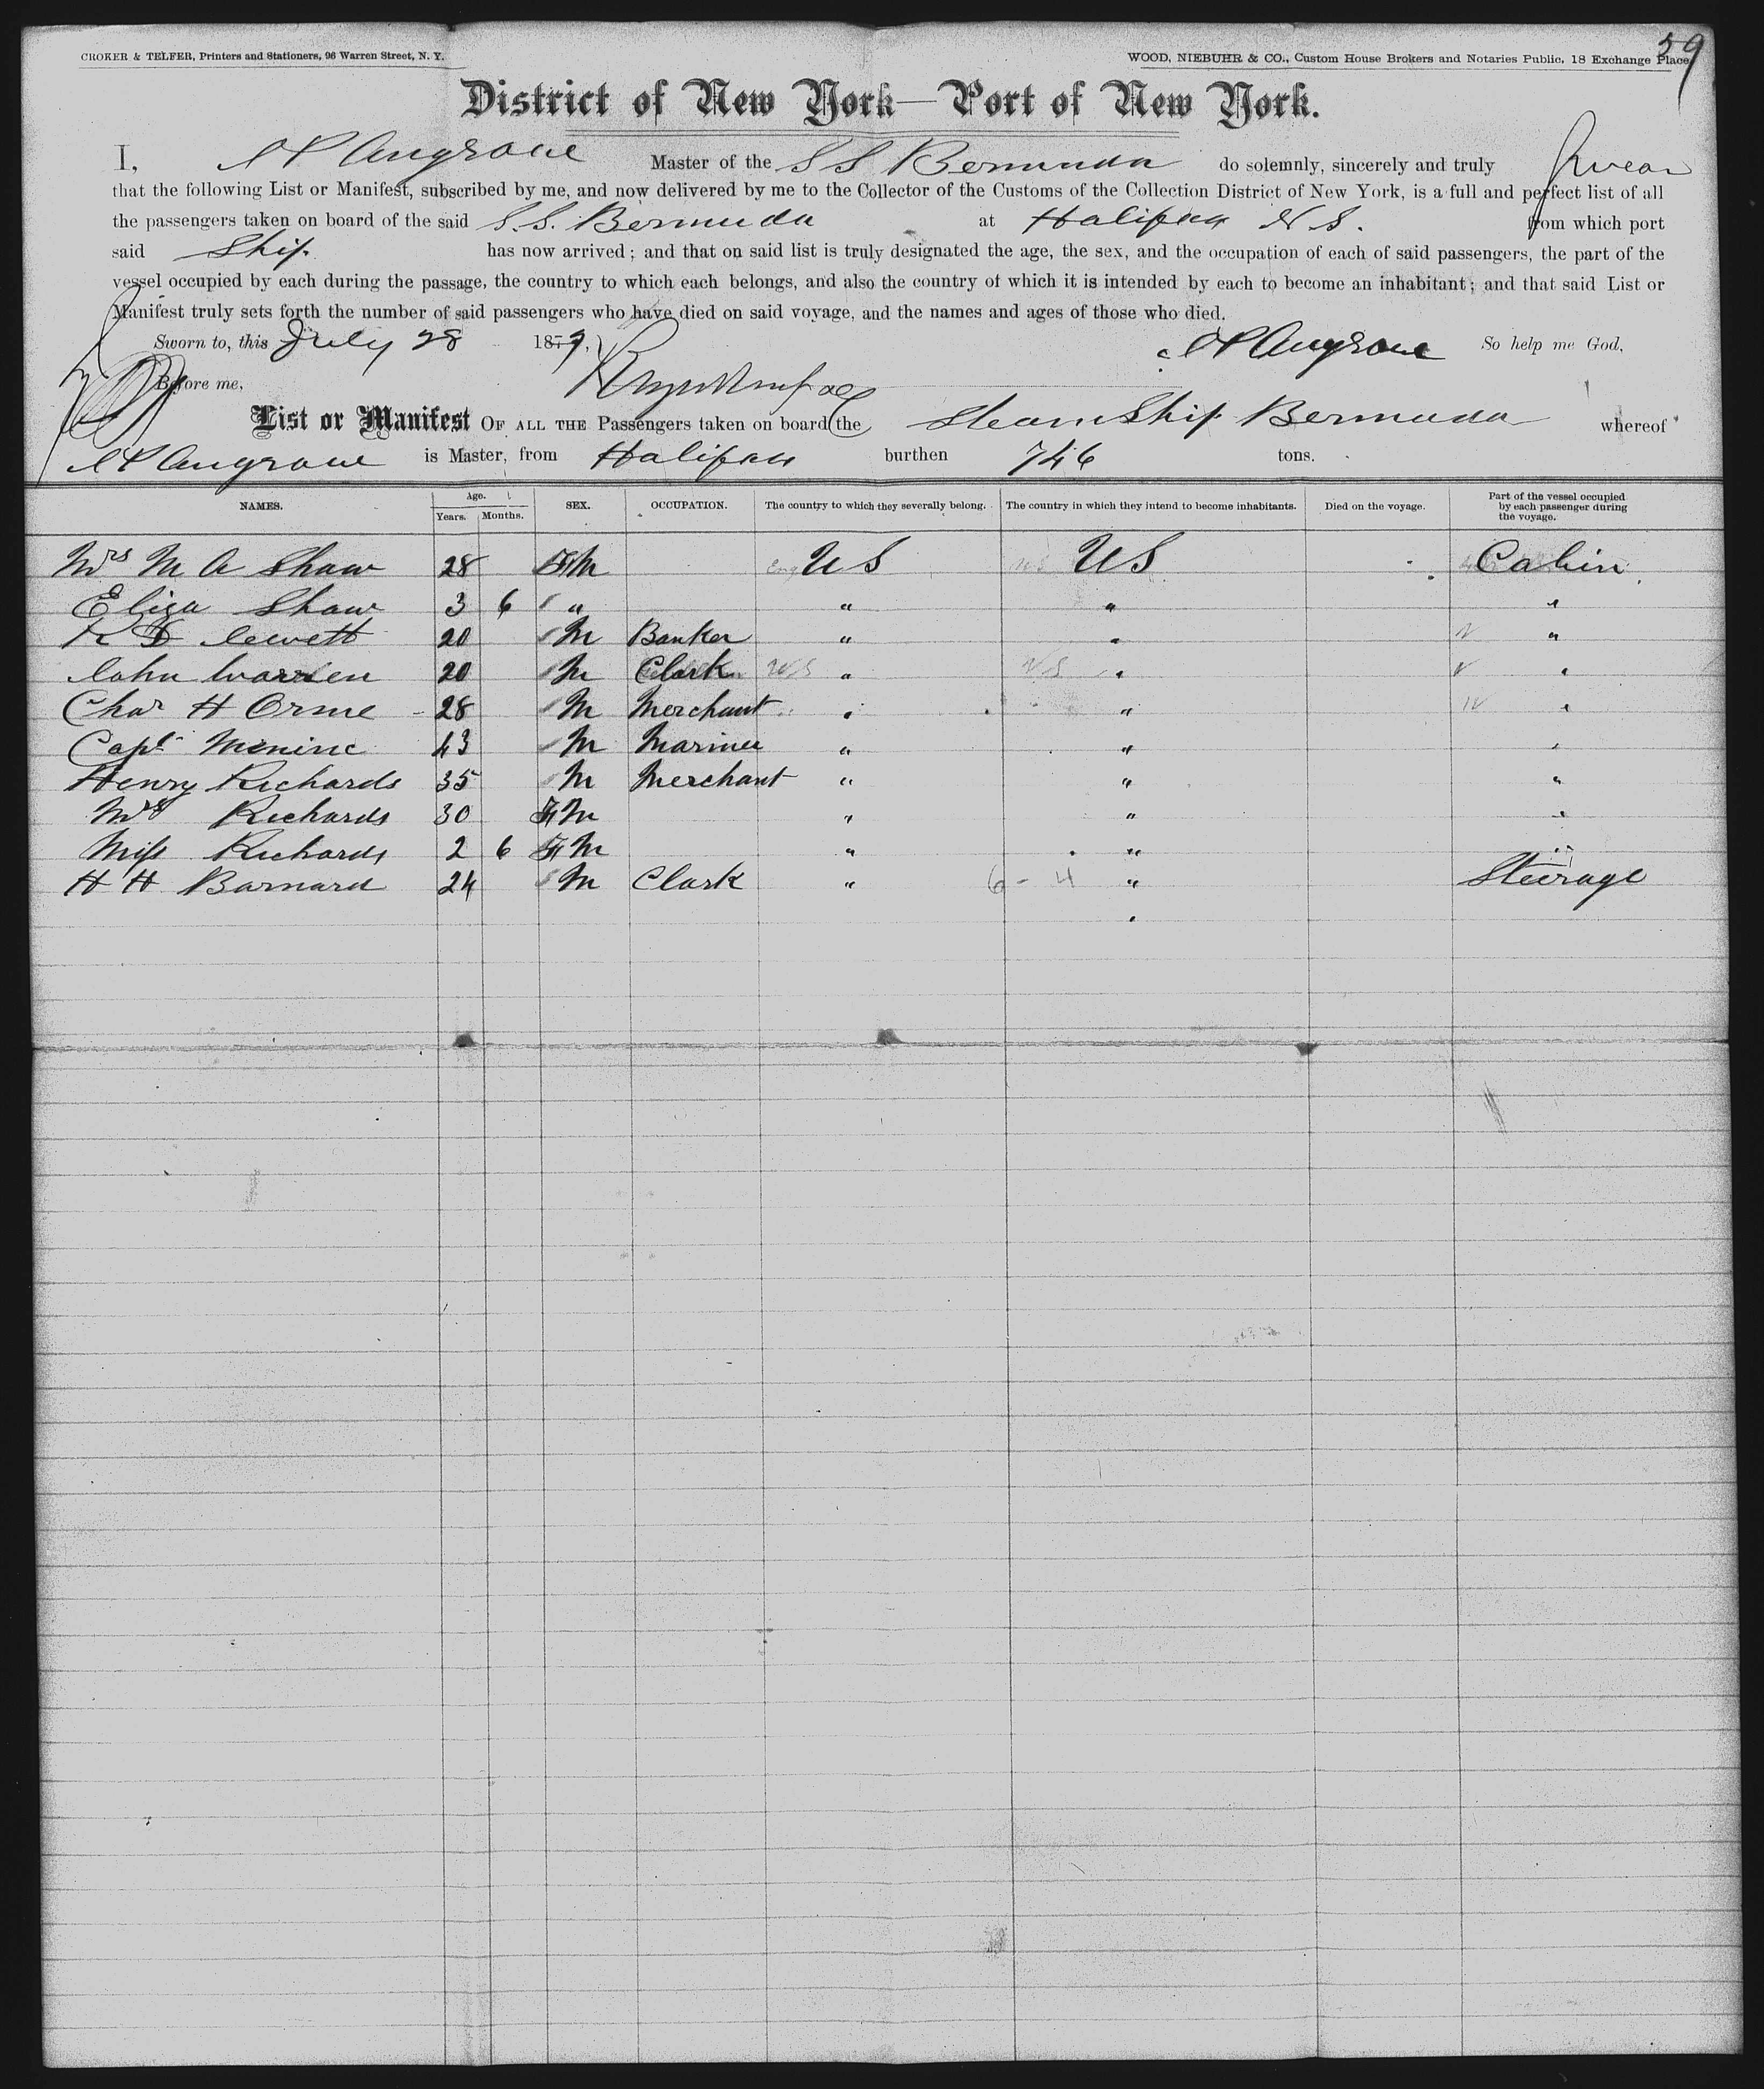 59
CROKER & TELFER, Printers and Stationers, 96 Warren Street, N. Y.
WOOD, NIEBUHR & CO., Custom House Brokers and Notaries Public, 18 Exchange Place
District of New York—Port of New York.
I, Angrove Master of the SS Bermuda do solemnly, sincerely and truly swear
that the following List or Manifest, subscribed by me, and now delivered by me to the Collector of the Customs of the Collection District of New York, is a full and perfect list of all
the passengers taken on board of the said S.S. Bermuda at Halifax N S. from which port
said Ship. has now arrived; and that on said list is truly designated the age, the sex, and the occupation of each of said passengers, the part of the
vessel occupied by each during the passage, the country to which each belongs, and also the country of which it is intended by each to become an inhabitant; and that said List or
Manifest truly sets forth the number of said passengers who have died on said voyage, and the names and ages of those who died.
Sworn to, this July 28 1879, Angrove So help me God,
Before me,
List or Manifest OF ALL THE Passengers taken on board the SteamShip Bermuda whereof
Angrove is Master, from Halifax burthen 746 tons.
NAMES. Age. Years. Months. SEX. OCCUPATION. The country to which they severally belong. The country in which they intend to become inhabitants. Died on the voyage. Part of the vessel occupied by each passenger during the voyage.
Mrs M A Shaw 28 F U S U S Cabin
Eliza Shaw 3 6 " " " "
20 M Banker " " "
John Warren 20 M Clark " " "
Chas H Orme 28 M Merchant " " "
Capt 43 M Mariner " " "
Henry Richards 35 M Merchant " " "
Mrs Richards 30 F " " "
Miss Richards 2 6 F " " "
H H Barnard 24 M Clark " 6 - 4 " Steerage
"